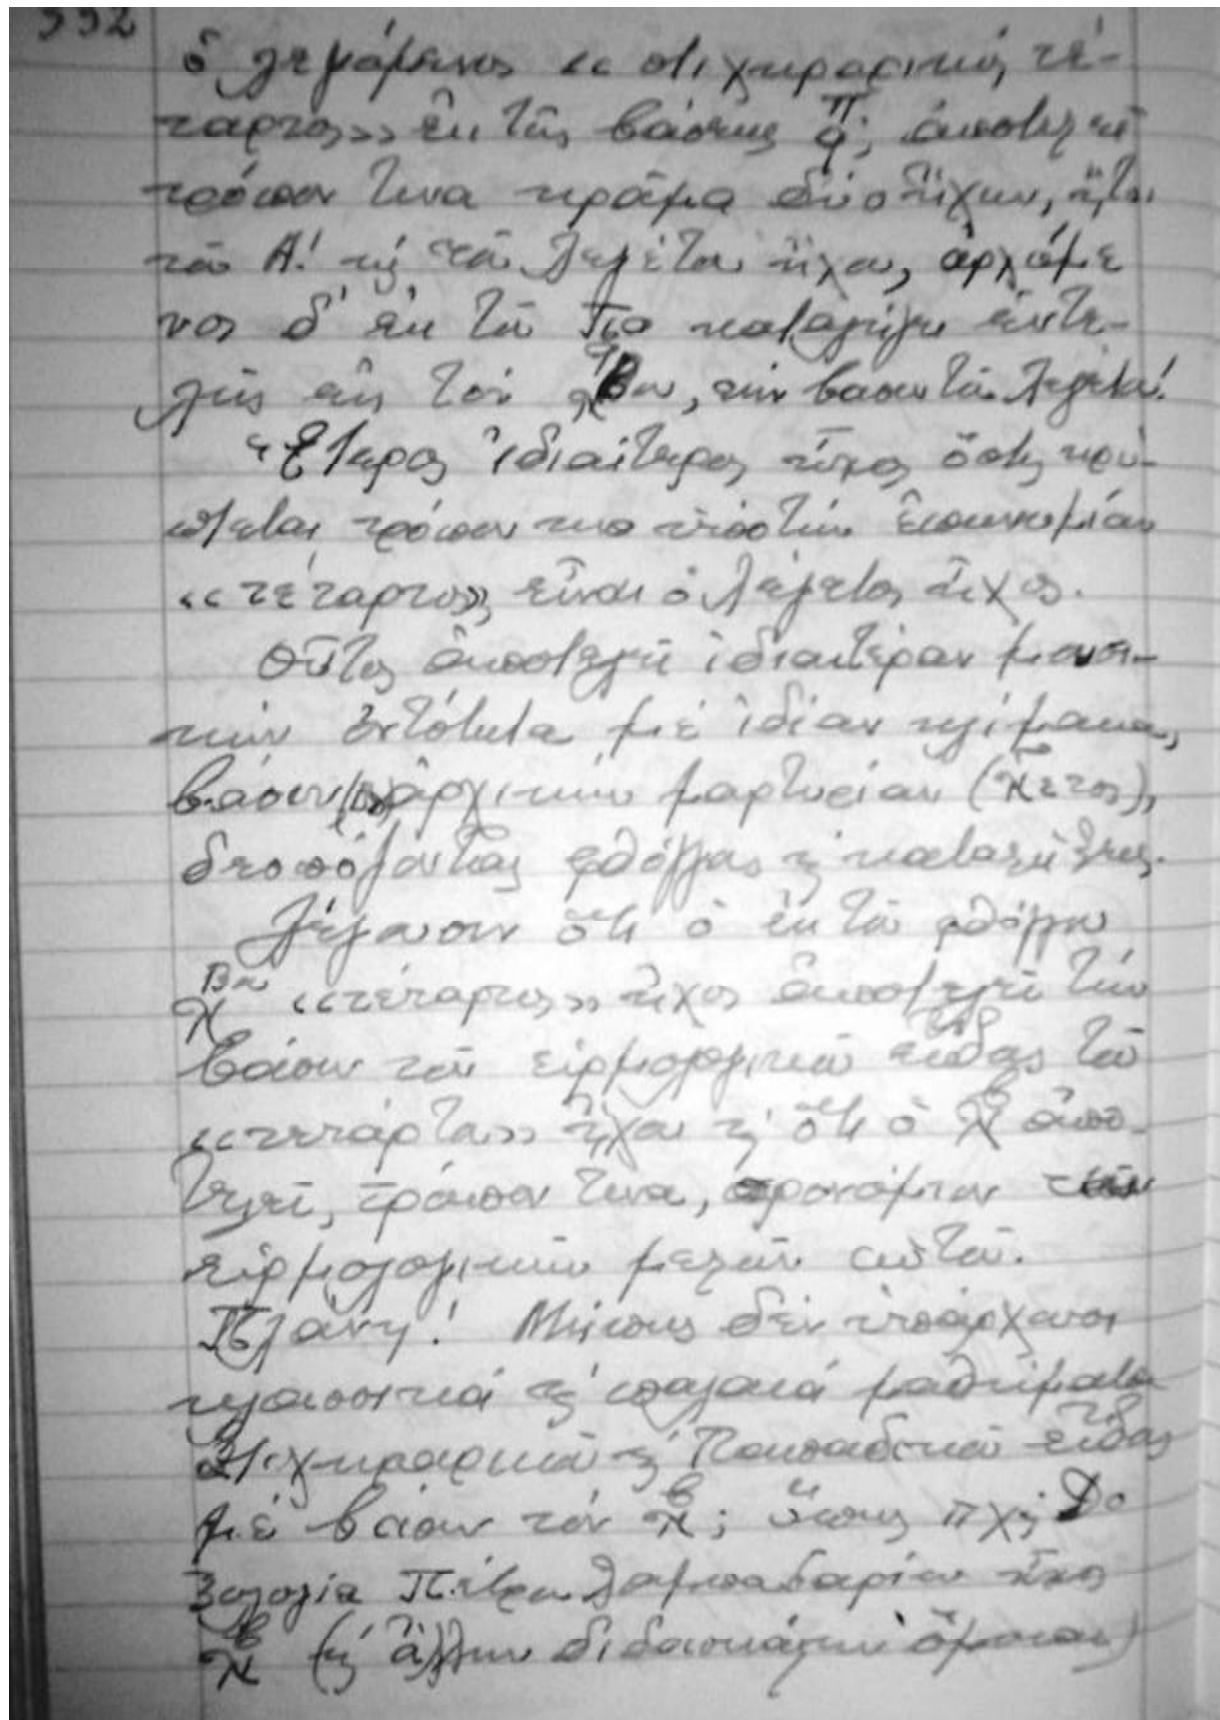 332
ὁ λεγόμενος «στιχηραρικὸς τέ-
ταρτος» ἐκ τῆς βάσεως Π, ἀποτελεῖ
τρόπον τινα κρᾶμα δύο ἤχων, ἤτοι
τοῦ Α! καὶ τοῦ Λεγέτου ἤχου, ἀρχόμε
νος δ' ἐκ τοῦ Πα καταλήγει ἐντε-
λῶς εἰς τὸν Βου, τὴν βάσιν τοῦ Λεγέτου!
Ἕτερος ἰδιαίτερος ἦχος ὅστις κρύ-
πτεται τρόπον τινα ὑπὸ τὴν ἐπωνυμίαν
«τέταρτος» εἶναι ὁ λέγετος ἦχος.
Οὗτος ἀποτελεῖ ἰδιαιτέραν μουσι-
κὴν ὀντότητα μὲ ἰδίαν κλίμακα,
βάσιν ἀρχικὴν μαρτυρίαν
δεσπόζοντας φθόγγους καὶ καταλήξεις.
Λέγουσιν ὅτι ὁ ἐκ τοῦ φθόγγου
Βου «τέταρτος» ἦχος ἀποτελεῖ τὴν
βάσιν τοῦ εἱρμολογικοῦ εἴδους τοῦ
«τετάρτου» ἤχου καὶ ὅτι ὁ β ἀπο-
τελεῖ, τρόπον τινα, προνόμιον τῶν
εἱρμολογικῶν μελῶν αὐτοῦ.
Πλάνη! Μήπως δὲν ὑπάρχουσι
κλασσικὰ καὶ παλαιὰ μαθήματα
Στιχηραρικοῦ καὶ Παπαδικοῦ εἴδους
μὲ βάσιν τὸν β; ὅπως πχ. Δο
ξολογία Πέτρου Λαμπαδαρίου ἦχος
β (καὶ ἄλλων διδασκάλων ὅμοιαι)